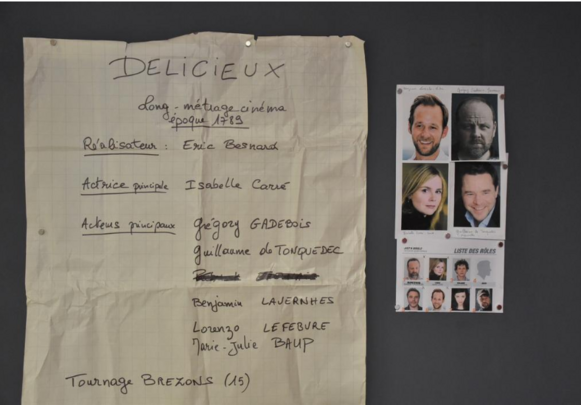 DELICIEUX
Long-métrage cinéma
époque 1789
Réalisateur : Eric Besnard
Actrice principale Isabelle Carré
Acteurs principaux Grégory GADEBOIS
Guillaume de TONQUEDEC
Benjamin LAVERNHES
Lorenzo LEFEBVRE
Marie-Julie BAUP
Tournage BREZONS (15)
LISTE DES RÔLES